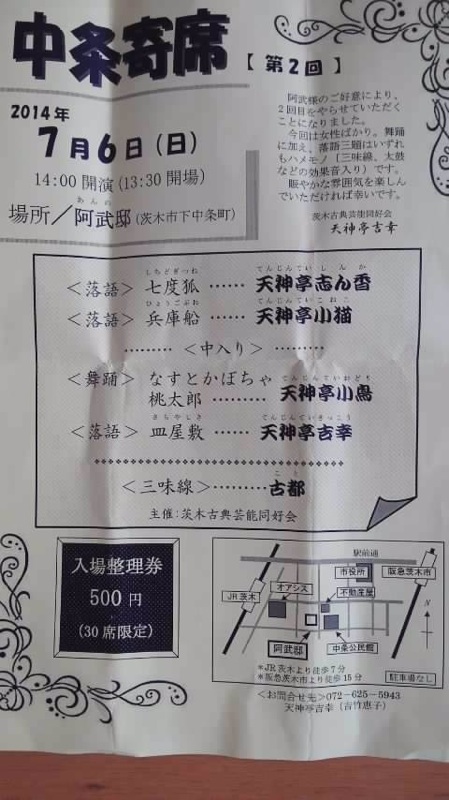 中条寄席【第2回】
2014年
7月6日(日)
14:00 開演(13:30 開場)
場所／阿武邸(茨木市下中条町)
あんの
阿武様のご好意により、
2回目をやらせていただく
ことになりました。
今回は女性ばかり。舞踊
に加え、落語三題はいずれ
もハメモノ(三味線、太鼓
などの効果音入り)です。
賑やかな雰囲気を楽しん
でいただければ幸いです。
茨木古典芸能同好会
天神亭吉幸
しちどぎつね てんじんていしんか
＜落語＞ 七度狐 …… 天神亭志ん香
ひょうごぶね てんじんていこねこ
＜落語＞ 兵庫船 …… 天神亭小猫
……… ＜中入り＞ ………
＜舞踊＞ なすとかぼちゃ
桃太郎 ……… 天神亭小鳥
さらやしき てんじんていきっこう
＜落語＞ 皿屋敷 …… 天神亭吉幸
こと
＜三味線＞ ……… 古都
主催:茨木古典芸能同好会
入場整理券
500 円
(30席限定)
駅前通
市役所
阪急茨木市
オアシス
不動産屋
JR茨木
N
阿武邸
中条公民館
＊JR茨木より徒歩7分
＊阪急茨木市より徒歩15分
駐車場なし
＜お問合せ先＞072-625-5943
天神亭吉幸(吉竹恵子)